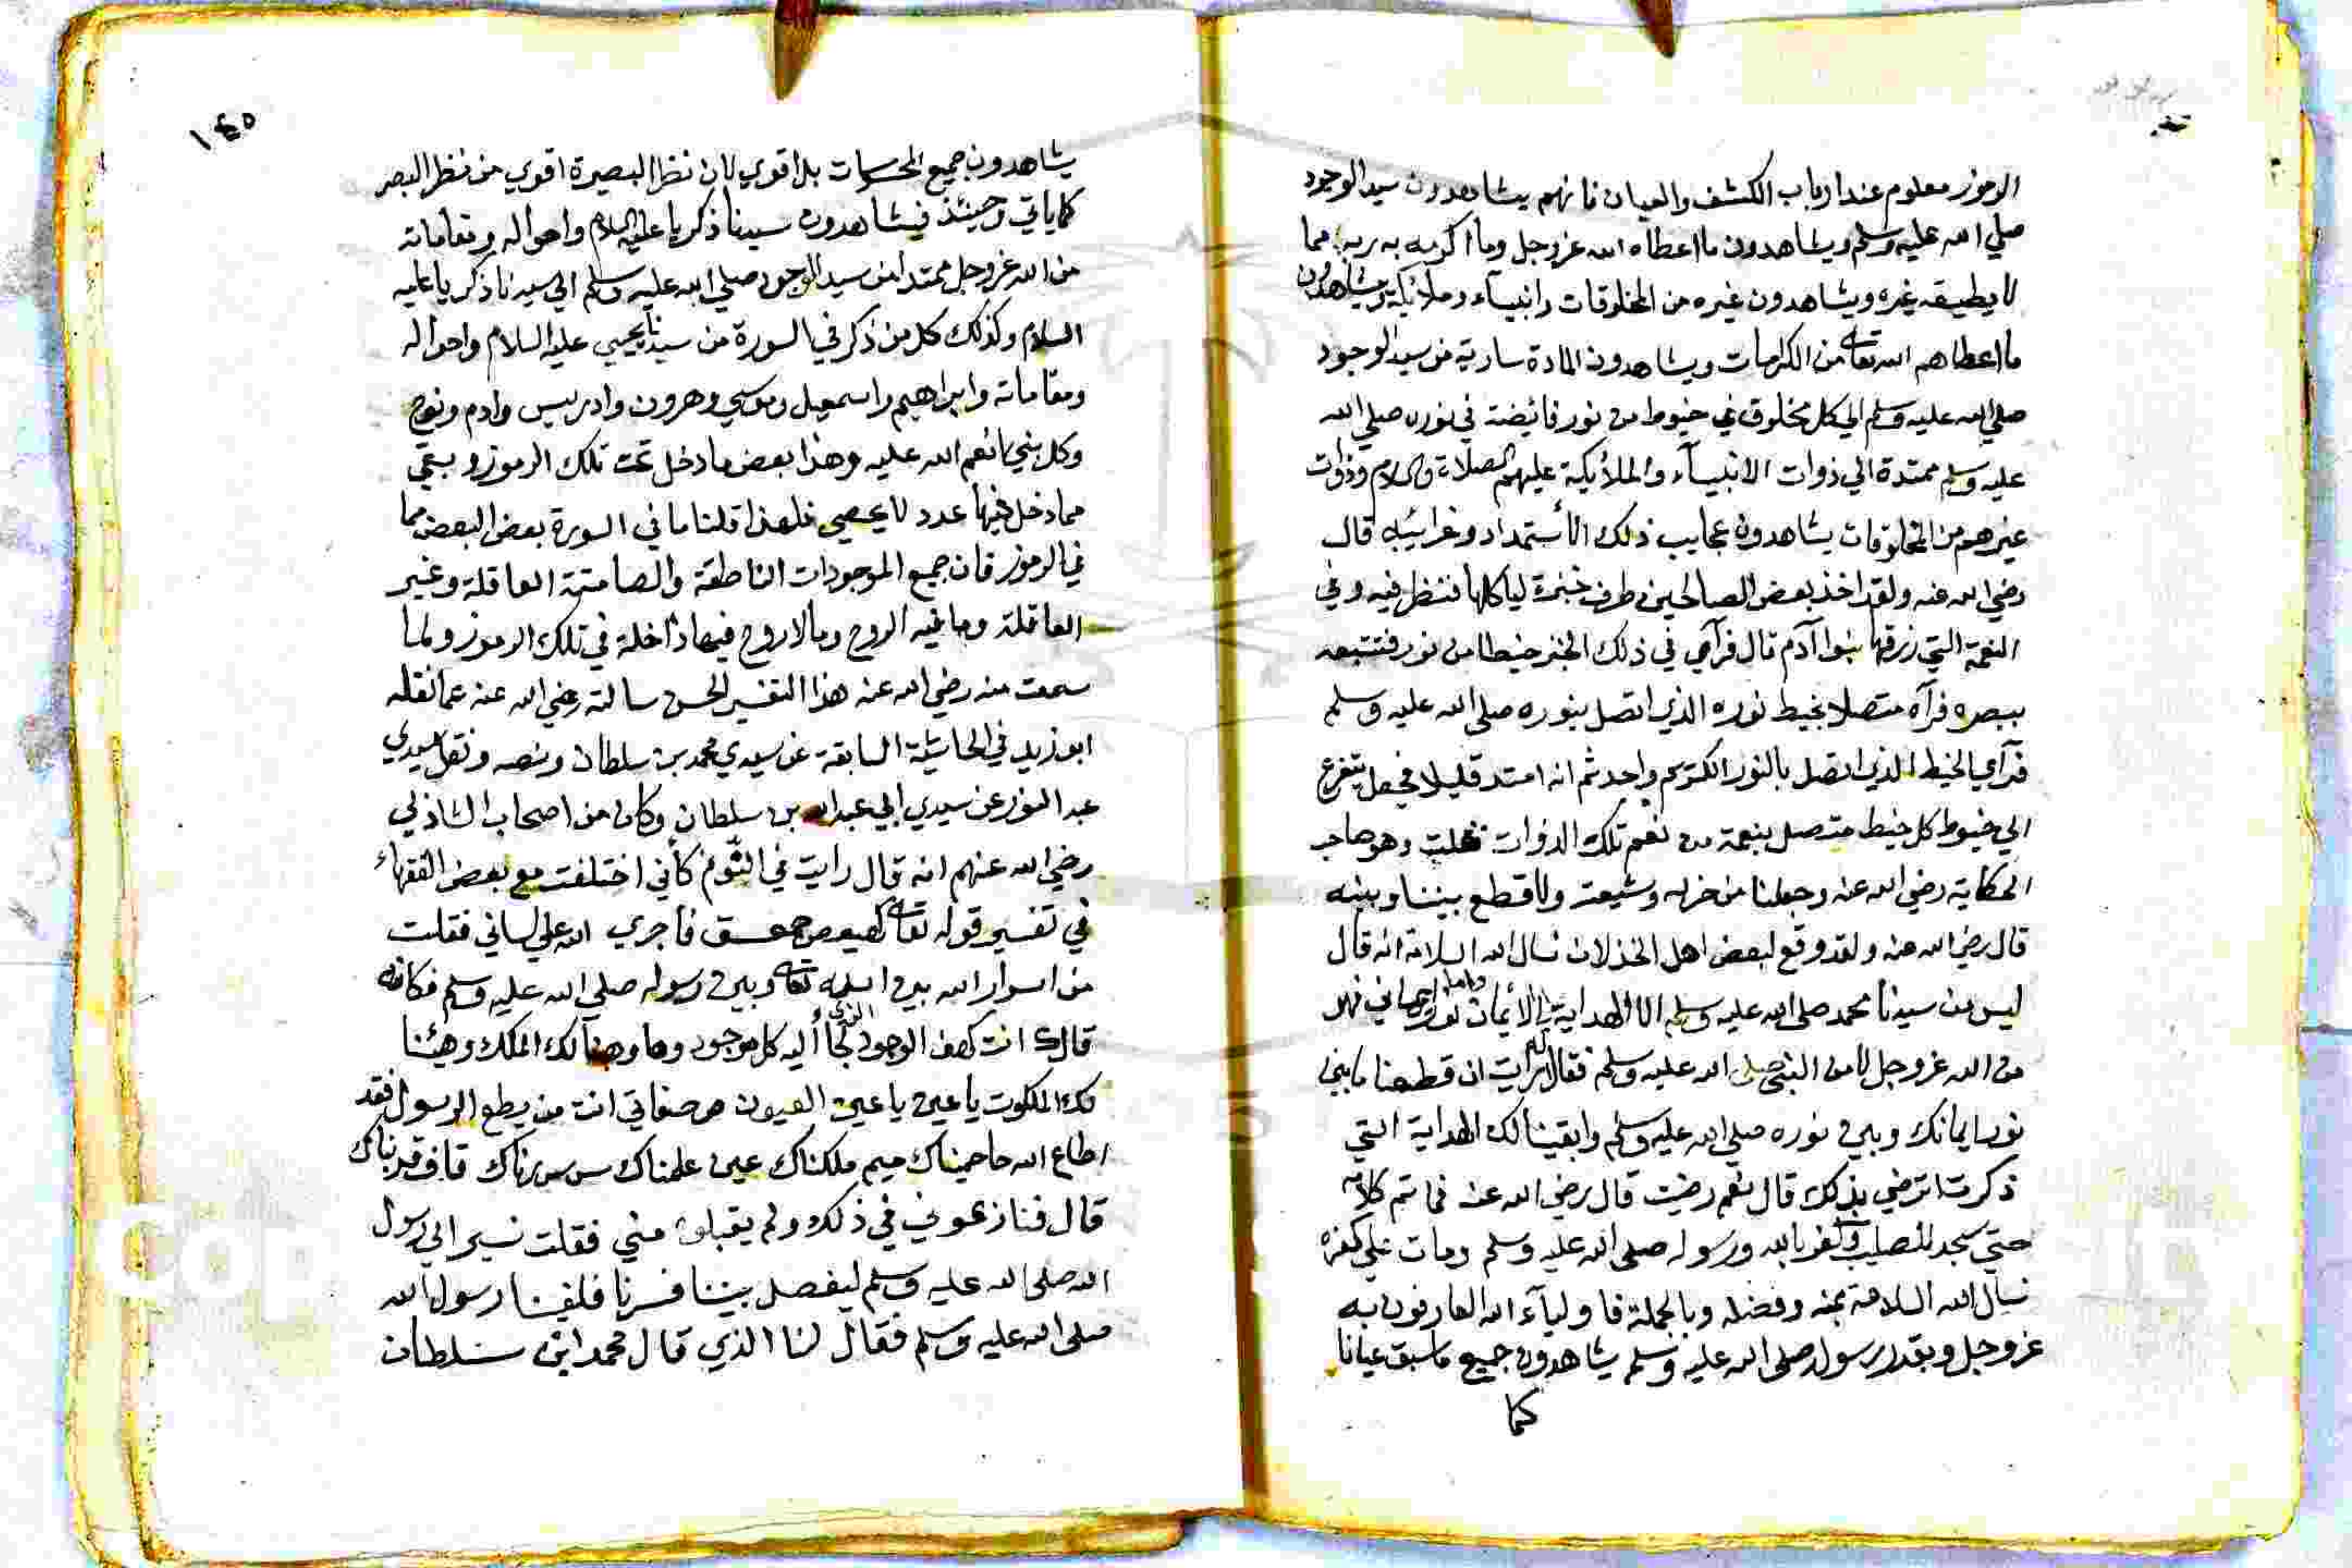 الرموز معلوم عند ارباب الكشف والعيان فانهم يشاهدون سيد الوجود
صلي الله عليه وسلم ويشاهدون ما اعطاه الله عز وجل وما اكرمه به ربه مما
لا يطيقه غيره ويشاهدون غيره من المخلوقات وانبيآء وملائكة ويشاهدون
ما اعطاهم الله تعالى من الكرامات ويشاهدون المادة سارية من سيد الوجود
صلي الله عليه وسلم الي كل مخلوق في خيوط من نور فائضة في نوره صلي الله
عليه وسلم ممتدة الي ذوات الانبيآء والملائكة عليهم الصلاة والسلام وذوات
غيرهم من المخلوقات يشاهدون عجايب ذلك الاستمداد وغرائبه قال
رضي الله عنه ولقد اخذ بعض الصالحين طرف خبزة لياكلها فنظر فيه وفي
النعمة التي رزقها بنوا آدم قال فرآي في ذلك الخبز خيطا من نور فتتبعه
ببصره فرآه متصلا بخيط نوره الذي اتصل بنوره صلي الله عليه وسلم
فرآي الخيط الذي اتصل بالنور الكريم واحد ثم انه امتد قليلا فجعل يتفرع
الي خيوط كل خيط متصل بنعمة من نعم تلك الذوات قلت وهو صاحب
الحكاية رضي الله عنه وجعلنا من حزبه وشيعته ولا قطع بيننا وبينه
قال رضي الله عنه ولقد وقع لبعض اهل الخذلان نسال الله السلامة انه قال
ليس من سيدنا محمد صلي الله عليه وسلم الا الهداية الي الايمان واما نور ايماني فهو
من الله عز وجل لا من النبي صلي الله عليه وسلم فقال له ارايت ان قطعنا ما بين
نور ايمانك وبين نوره صلي الله عليه وسلم وابقينا لك الهداية التي
ذكرت اترضي بذلك قال نعم رضيت قال رضي الله عنه فما تم كلامه
حتي سجد للصليب وكفر بالله ورسوله صلي الله عليه وسلم ومات علي كفره
نسال الله السلامة بمنه وفضله وبالجملة فاوليآء الله العارفون به
عز وجل وبقدر رسول صلي الله عليه وسلم يشاهدون جميع ما سبق عيانا
كما
١٤٥
يشاهدون جميع المحسوسات بل اقوي لان نظر البصيرة اقوي من نظر البصر
كما ياتي وحينئذ فيشاهدون سيدنا ذكريا عليه السلام واحواله ومقاماته
من الله عز وجل ممتد من سيد الوجود صلي الله عليه وسلم الي سيدنا ذكريا عليه
السلام وكذلك كل من ذكر في السورة من سيدنا يحيي عليه السلام واحواله
ومقاماته وابراهيم واسمعيل وموسي وهرون وادريس وادم ونوح
وكل نبي انعم الله عليه وهذا بعض ما دخل تحت تلك الرموز وبقي
مما دخل فيها عدد لا يحصي فلهذا قلنا ما في السورة بعض البعض مما
في الرموز فان جميع الموجودات الناطقة والصامتة العاقلة وغير
العاقلة وما فيه الروح وما لا روح فيها داخلة في تلك الرموز ولما
سمعت منه رضي الله عنه هذا التفسير الحسن سالته رضي الله عنه عما نقله
ابو زيد في الحاشية السابقة عن سيدي محمد بن سلطان ونصه ونقل سيدي
عبد النور عن سيدي ابي عبد الله بن سلطان وكان من اصحاب الشاذلي
رضي الله عنهم انه قال رايت في النوم كأني اختلفت مع بعض الفقهاء
في تفسير قوله تعالى كهيعص حمعسق فاجري الله علي لساني فقلت
من اسرار الله بين الله تعالى وبين رسوله صلي الله عليه وسلم فكانه
قال ك انت كهف الوجود الذي لجا اليه كل موجود وها وهبنا لك الملك وهيئنا
لك الملكوت يا عين يا عين العيون ص صفاتي انت من يطع الرسول فقد
اطاع الله حا حميناك ميم ملكناك عين علمناك س سررناك قاف قربناك
قال فنازعوني في ذلك ولم يقبلوه مني فقلت نسير الي رسول
الله صلي الله عليه وسلم ليفصل بيننا فسرنا فلقينا رسول الله
صلي الله عليه وسلم فقال لنا الذي قال محمد ابن سلطان